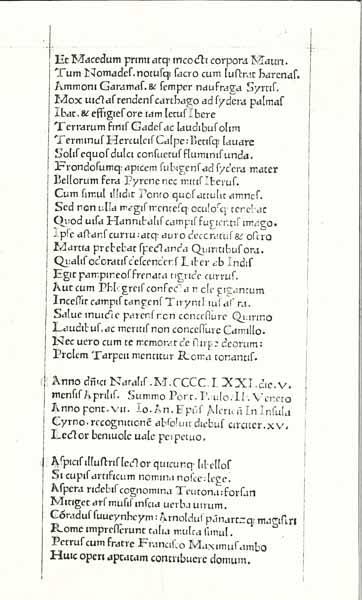 Et Macedum primi atq; incocti corpora Mauri.
Tum Nomades. notusq; sacro cum lustrat harenas.
Ammoni Garamas. & semper naufraga Syrtis.
Mox uictas tendens carthago ad sydera palmas
Ibat. & effigies ore iam letus Ibere
Terrarum finis Gades ac laudibus olim
Terminus Herculeis Calpe: Betisq; lauare
Solis equos dulci consuetus fluminis unda.
Frondosumq; apicem subigens ad sydera mater
Bellorum fera Pyrene nec mitis Iberus.
Cum simul illidit Ponto quos attulit amnes.
Sed non ulla magis mentesq; oculosq; tenebat
Quod uisa Hannibalis campis fugientis imago.
Ipse astans curru: atq; auro decoratus & ostro
Martia prebebat spectanda Quiritibus ora.
Qualis odoratis descendens Liber ab Indis
Egit pampineos frenata tigride currus.
Aut cum Phlegreis confecta mole gigantum
Incessit campis tangens Tirynthius astra.
Salue inuicte parens non concessure Quirino
Laudibus. ac meritis non concessure Camillo.
Nec uero cum te memorat de stirpe deorum:
Prolem Tarpei mentitur Roma tonantis.
Anno dñici Natalis. M.CCCC.LXXI. die. V.
mensis Aprilis. Summo Pont. Paulo. II. Veneto
Anno pont. VII. Io. An. Epũs Alerieñ In Insula
Cyrno. recognitionẽ absoluit diebus circiter. XV.
Lector beniuole uale perpetuo.
Aspicis illustris lector quicunq; libellos
Si cupis artificum nomina nosce: lege.
Aspera ridebis cognomina Teutona: forsan
Mitiget ars musis inscia uerba uirum.
Cõradus suueynheym: Arnoldus pãnartzq; magistri
Rome impresserunt talia multa simul.
Petrus cum fratre Francisco Maximus ambo
Huic operi aptatam contribuere domum.